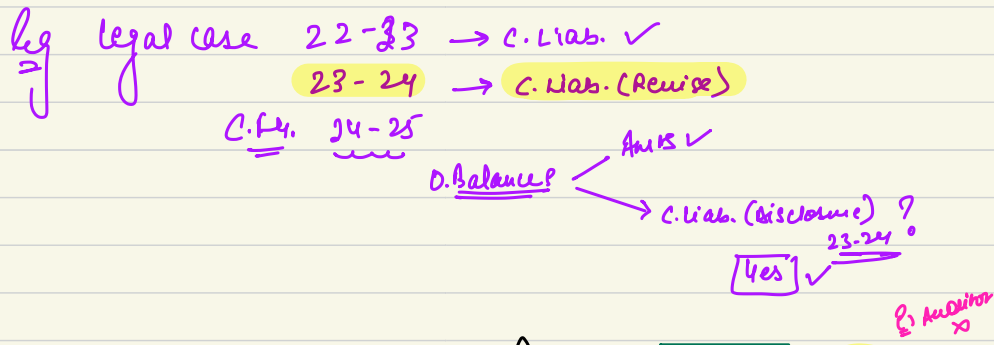 Eg Legal Case 22-23 → C. Liab. ✓
23-24 → C. Liab. (Revise)
C.F.Y. 24-25
Amts ✓
O. Balances
C. Liab. (Disclosure) ?
23-24
Yes ✓
Auditor
x